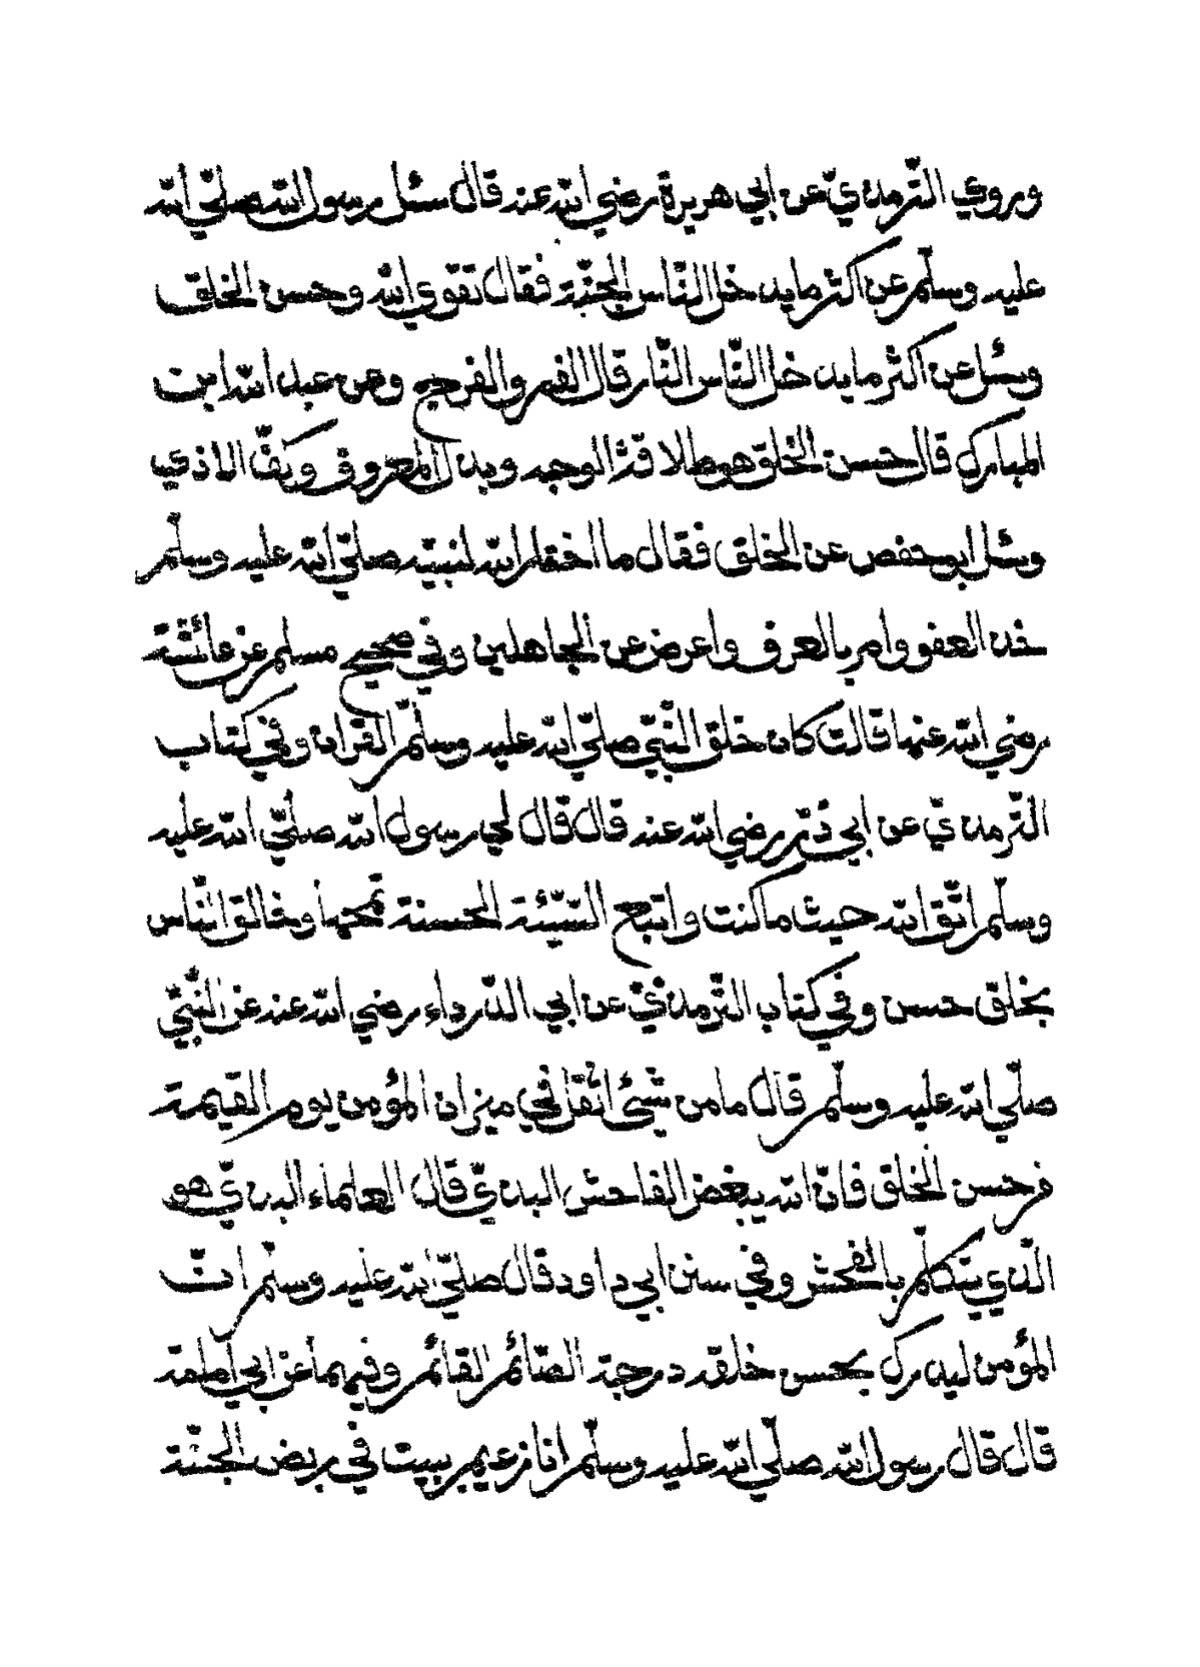 وروي الترمذيّ عن ابي هريرة رضي الله عنه قال سئل رسول الله صلّي الله
عليه وسلّم عن اكثر ما يدخل النّاس الجنّة فقال تقوي الله وحسن الخلق
وسئل عن اكثر ما يدخل النّاس النّار قال الفم والفرج وعن عبد الله ابن
المبارك قال حسن الخلق هو طلاقة الوجه وبذل المعروف وكفّ الاذي
وسئل ابو حفص عن الخلق فقال ما اختار الله لنبيّه صلّي الله عليه وسلّم
خذ العفو وامر بالعرف واعرض عن الجاهلين وفي صحيح مسلم عن عائشة
رضي الله عنها قالت كان خلق النّبيّ صلّي الله عليه وسلّم القران وفي كتاب
التّرمذيّ عن ابي ذرّ رضي الله عنه قال قال لي رسول الله صلّي الله عليه
وسلّم اتّق الله حيث ما كنت واتبع السّيّئة الحسنة تمحها وخالق النّاس
بخلق حسن وفي كتاب التّرمذيّ عن ابي الدّرداء رضي الله عنه عن النّبيّ
صلّي الله عليه وسلّم قال ما من شئ اثقل في ميزان المؤمن يوم القيمة
من حسن الخلق فانّ الله يبغض الفاحش البذيّ قال العلماء البذيّ هو
الّذي يتكلّم بالفحش وفي سنن ابي داود قال صلّي الله عليه وسلّم انّ
المؤمن ليدرك بحسن خلقه درجة الصّائم القائم وفيهما عن ابي امامة
قال قال رسول الله صلّي الله عليه وسلّم انا زعيم ببيت في ربض الجنّة